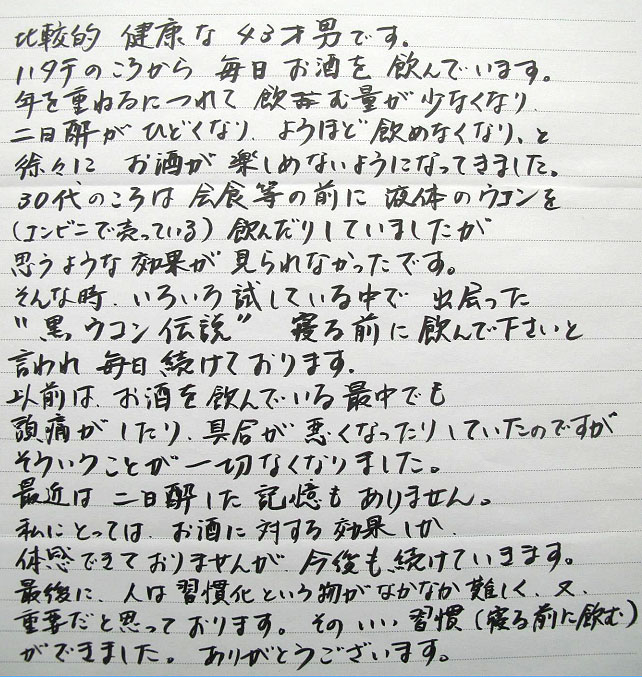 比較的 健康な 43才男です.
ハタチのころから 毎日 お酒を 飲んでいます。
年を重ねるにつれて 飲む量が少なくなり.
二日酔がひどくなり、ようほど飲めなくなり、と
徐々に お酒が 楽しめないようになってきました。
30代のころは 会食等の前に 液体のウコンを
(コンビニで売っている)飲んだりしていましたが
思うような効果が見られなかったです。
そんな時、いろいろ試している中で 出会った
"黒ウコン伝説" 寝る前に飲んで下さいと
言われ 毎日続けております.
以前は、お酒を飲んでいる最中でも
頭痛がしたり、具合が悪くなったりしていたのですが
そういうことが一切なくなりました。
最近は 二日酔した記憶もありません。
私にとっては、お酒に対する効果しか、
体感できておりませんが、今後も続けていきます。
最後に、人は習慣化という物がなかなか難しく、又、
重要だと思っております。そのいい習慣(寝る前に飲む)
ができました。ありがとうございます。